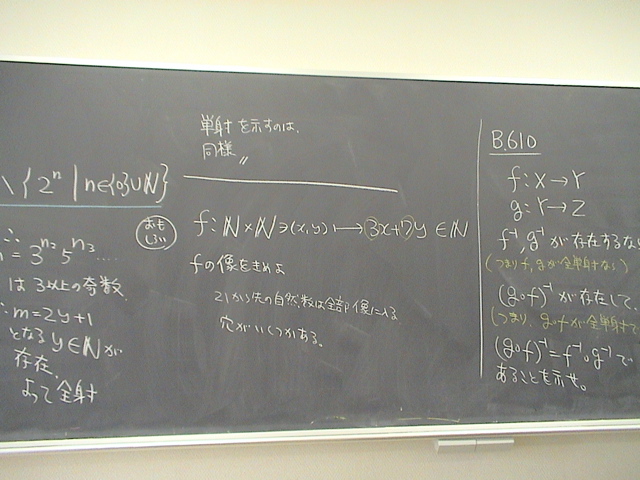 \ {2ⁿ | n∈{0}∪ℕ}
∴
= 3ⁿ² 5ⁿ³ ....
は3以上の奇数.
∴ m=2y+1
となる y∈ℕが
存在.
よって全射
単射を示すのは、
同様〃
おもしろい
f: ℕ×ℕ∋(x,y) ⟼ 3x+7y ∈ℕ
fの像をきめよ
21から先の自然数は全部像に入る
穴がいくつかある。
B.610
f: X→Y
g: Y→Z
f⁻¹, g⁻¹ が存在するな
(つまりf, gが全単射なら)
(g∘f)⁻¹ が存在して、
(つまり、g∘fが全単射で
(g∘f)⁻¹ = f⁻¹∘g⁻¹ で
あることを示せ。